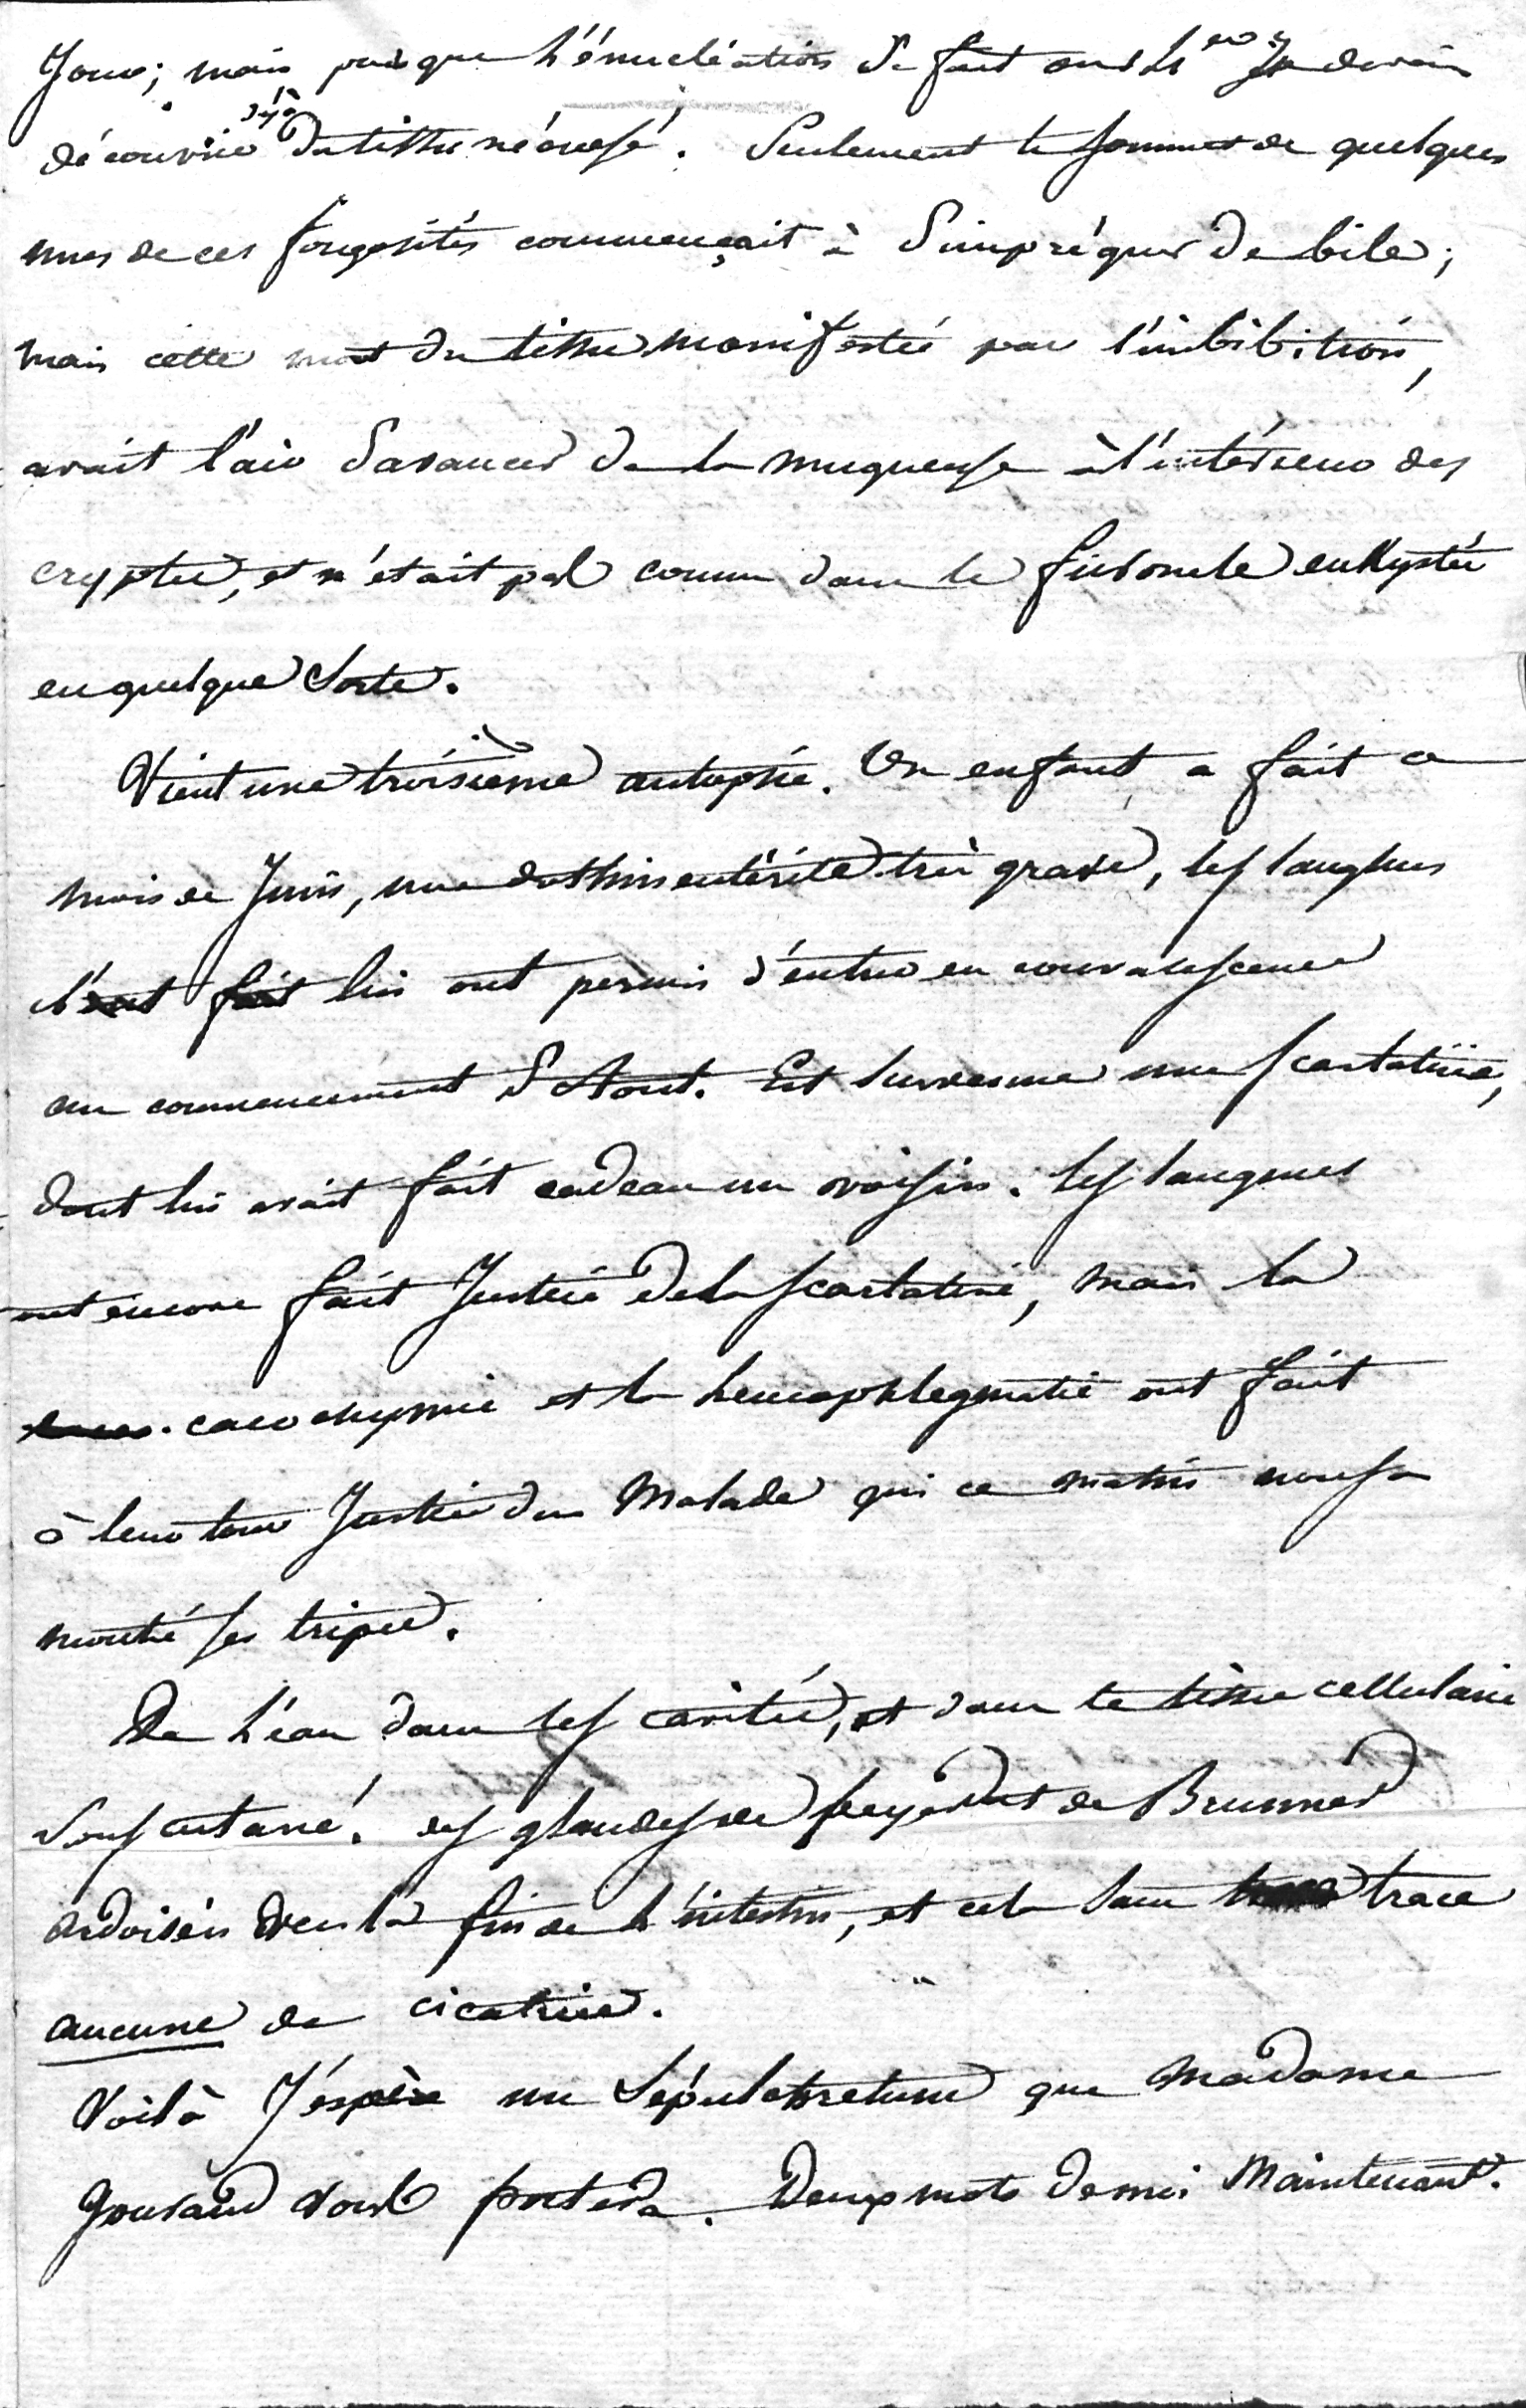 Jour; mais puisque l'énucléation se fait au 14eme Je devais
découvrir déjà du tissu nécrosé. Seulement le sommet de quelques
unes de ces fongosités commençait à s'imprégner de bile;
mais cette mort du tissu manifestée par l'imbibition,
avait l'air d'avancer de la muqueuse à l'intérieur des
cryptes, et n'était pas comme dans le furoncle enkystée
en quelque sorte.
Vient une troisième autopsie. Un enfant a fait au
mois de Juin, une dothinentérite très grave, les sangsues
l'ont fait lui ont permis d'entrer en convalescence
au commencement d'Aout. Est survenue une scarlatine,
dont lui avait fait cadeau un voisin. les sangsues
ont encore fait Justice de la scarlatine, mais la
cacochymie et la leucophlegmatie ont fait
à leur tour Justice du malade qui ce matin nous a
montré ses tripes.
De l'eau dans les cavités, et dans le tissu cellulaire
sous cutané. des glandes de peyer et de Brunner
ardoisées vers la fin de l'intestin, et cela sans trace
aucune de cicatrice.
Voilà J'espère un Sépulchretum que madame
Gouraud vous portera. Deux mots de moi Maintenant.